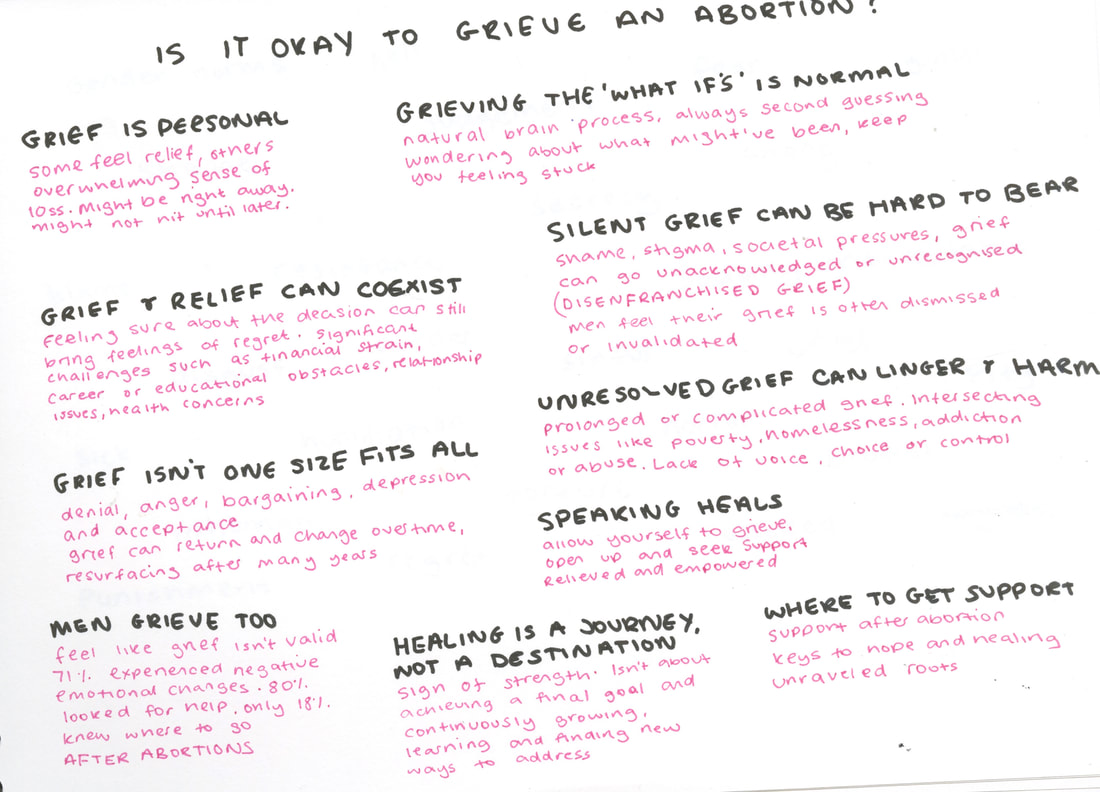 IS IT OKAY TO GRIEVE AN ABORTION?
GRIEF IS PERSONAL
some feel relief, others
overwhelming sense of
loss. Might be right away.
might not hit until later.
GRIEVING THE 'WHAT IF'S' IS NORMAL
natural brain process, always second guessing
wondering about what might've been, keep
you feeling stuck
SILENT GRIEF CAN BE HARD TO BEAR
shame, stigma, societal pressures, grief
can go unacknowledged or unrecognised
(DISENFRANCHISED GRIEF)
men feel their grief is often dismissed
or invalidated
GRIEF & RELIEF CAN COEXIST
Feeling sure about the decision can still
bring feelings of regret. Significant
challenges such as financial strain,
career or educational obstacles, relationship
issues, health concerns
UNRESOLVED GRIEF CAN LINGER & HARM
prolonged or complicated grief. Intersecting
issues like poverty, homelessness, addiction
or abuse. Lack of voice, choice or control
GRIEF ISN'T ONE SIZE FITS ALL
denial, anger, bargaining, depression
and acceptance
grief can return and change overtime,
resurfacing after many years
SPEAKING HEALS
allow yourself to grieve,
open up and seek support
Relieved and empowered
MEN GRIEVE TOO
feel like grief isn't valid
71%. experienced negative
emotional changes. 80%.
looked for help. only 18%.
knew where to go
AFTER ABORTIONS
HEALING IS A JOURNEY,
NOT A DESTINATION
sign of strength. Isn't about
achieving a final goal and
continuously growing,
learning and finding new
ways to address
WHERE TO GET SUPPORT
support after abortion
keys to hope and healing
unraveled roots